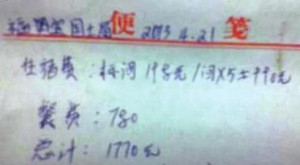 便 2013.4.21 笺
住宿费：标间198元/间X5=990元
餐费：780
总计：1770元